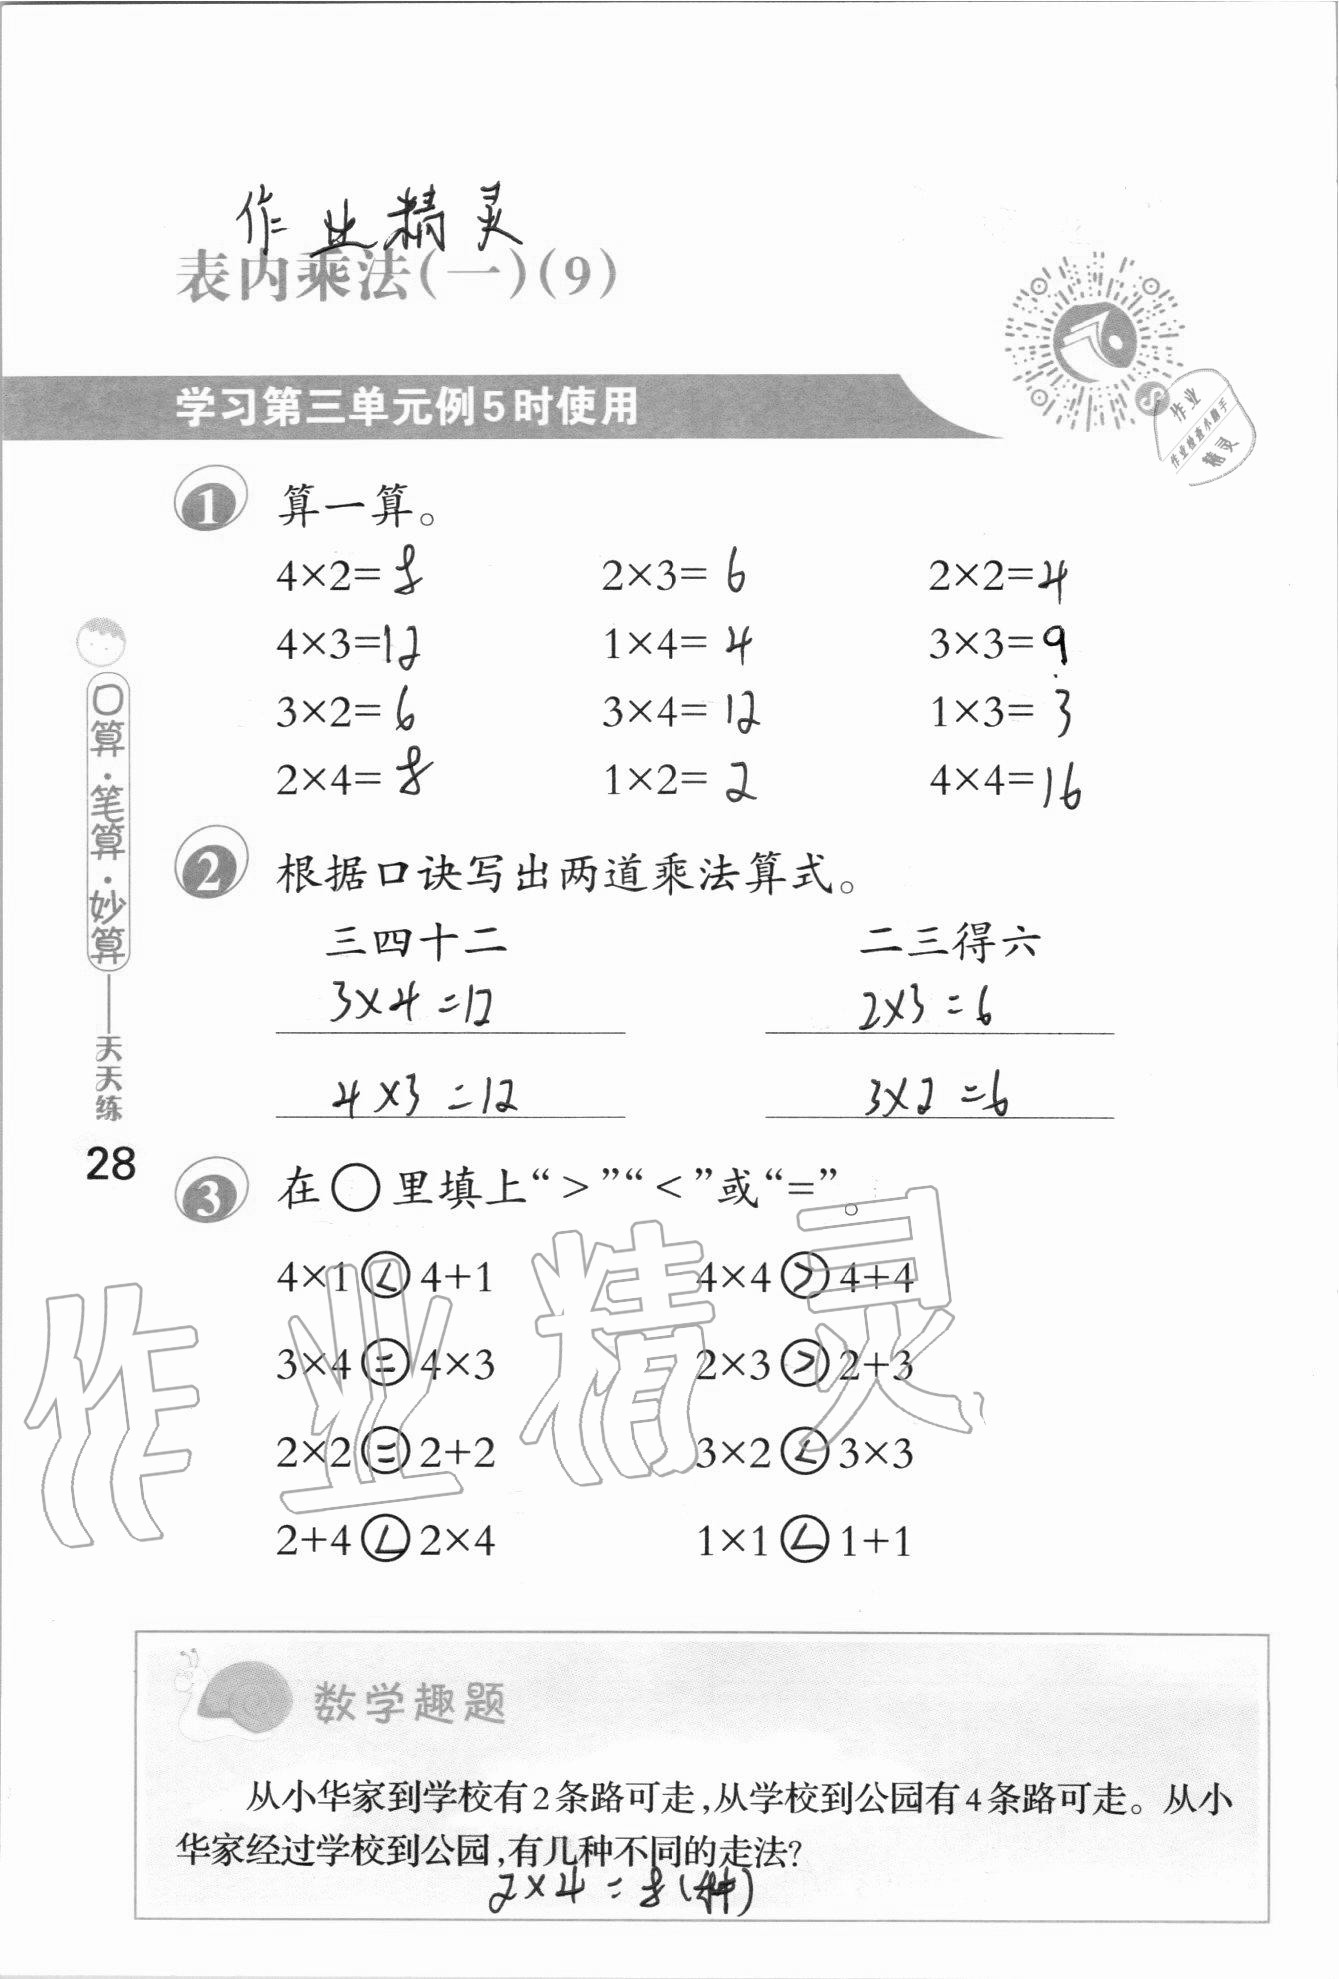 作业精灵
表内乘法(一)(9)
学习第三单元例5时使用
作业
作业检查小助手
精灵
1 算一算。
4×2=8 2×3=6 2×2=4
4×3=12 1×4=4 3×3=9
3×2=6 3×4=12 1×3=3
2×4=8 1×2=2 4×4=16
2 根据口诀写出两道乘法算式。
三四十二 二三得六
3×4=12 2×3=6
4×3=12 3×2=6
口算·笔算·妙算——天天练
28
3 在○里填上“>”“<”或“=”。
4×1<4+1 4×4>4+4
3×4=4×3 2×3>2+3
2×2=2+2 3×2<3×3
2+4<2×4 1×1<1+1
作业精灵
数学趣题
从小华家到学校有2条路可走,从学校到公园有4条路可走。从小
华家经过学校到公园,有几种不同的走法?
2×4=8(种)